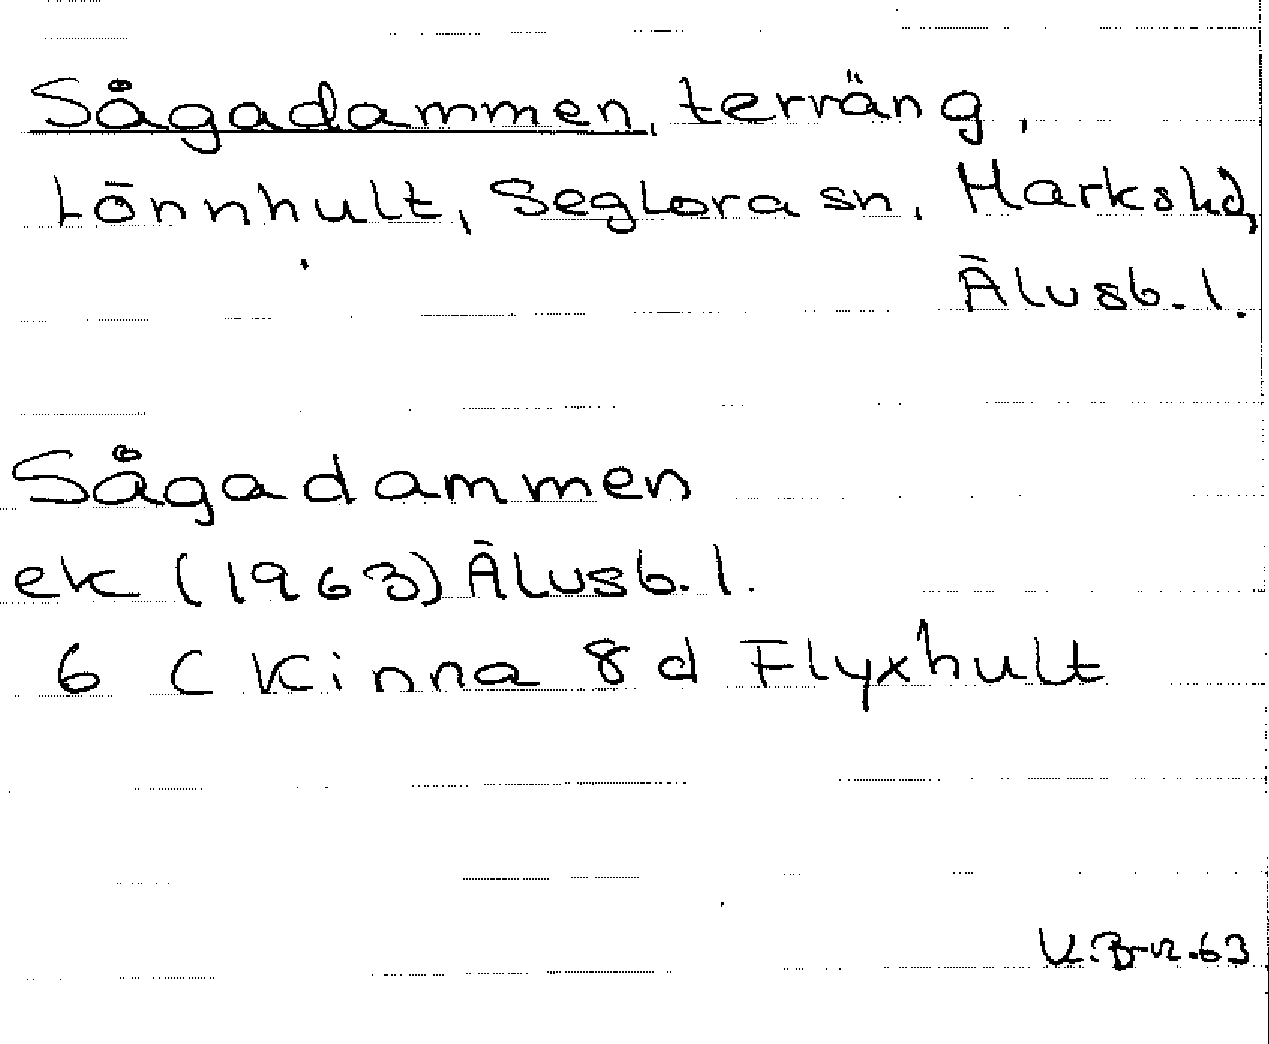 Sågadammen, terräng,
Lönnhult, Seglora sn, Markshd,
Älvsb. l.
Sågadammen
ek (1963) Älvsb. l.
6 C Kinna 8 d Flyxhult